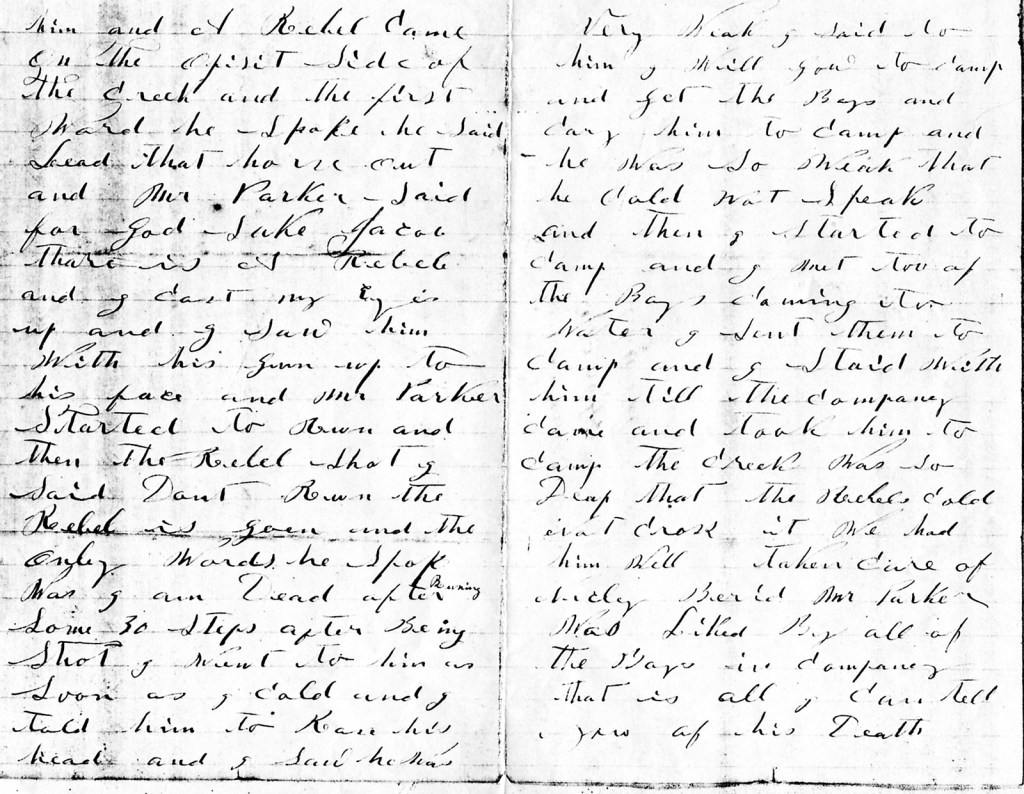 him and A Rebel Came
on the opisit Side of
the Creek and the first
Word he Spoke he Said
Lead that horse out
and Mr Parker Said
for God Sake Jacob
thare is A Rebel
and I Cast my Ey is
up and I Saw him
With his Gun up to
his face and Mr Parker
Started to Run and
then the Rebel Shot I
Said Dant Run the
Rebel is goen and the
Only Words he Spok
Was I am Dead after Runing
Some 30 Steps after Being
Shot I Went to him as
Soon as I Cold and I
told him to Rase his
head and I Saw he Was
Very Weak I Said to
him I Will gow to Camp
and get the Boys and
Cary him to Camp and
he Was So Weak that
he Cold not Speak
and then I Started to
Camp and I met too of
the Boys Coming to
Water I Sent them to
Camp and I Staid With
him till the Company
Came and took him to
Camp the Creek Was So
Deap that the Rebels Cold
not Cross it We had
him Well taken Care of
nicly Beried Mr Parker
Was Liked By all of
the Boys in Company
that is all I Can tell
you of his Death